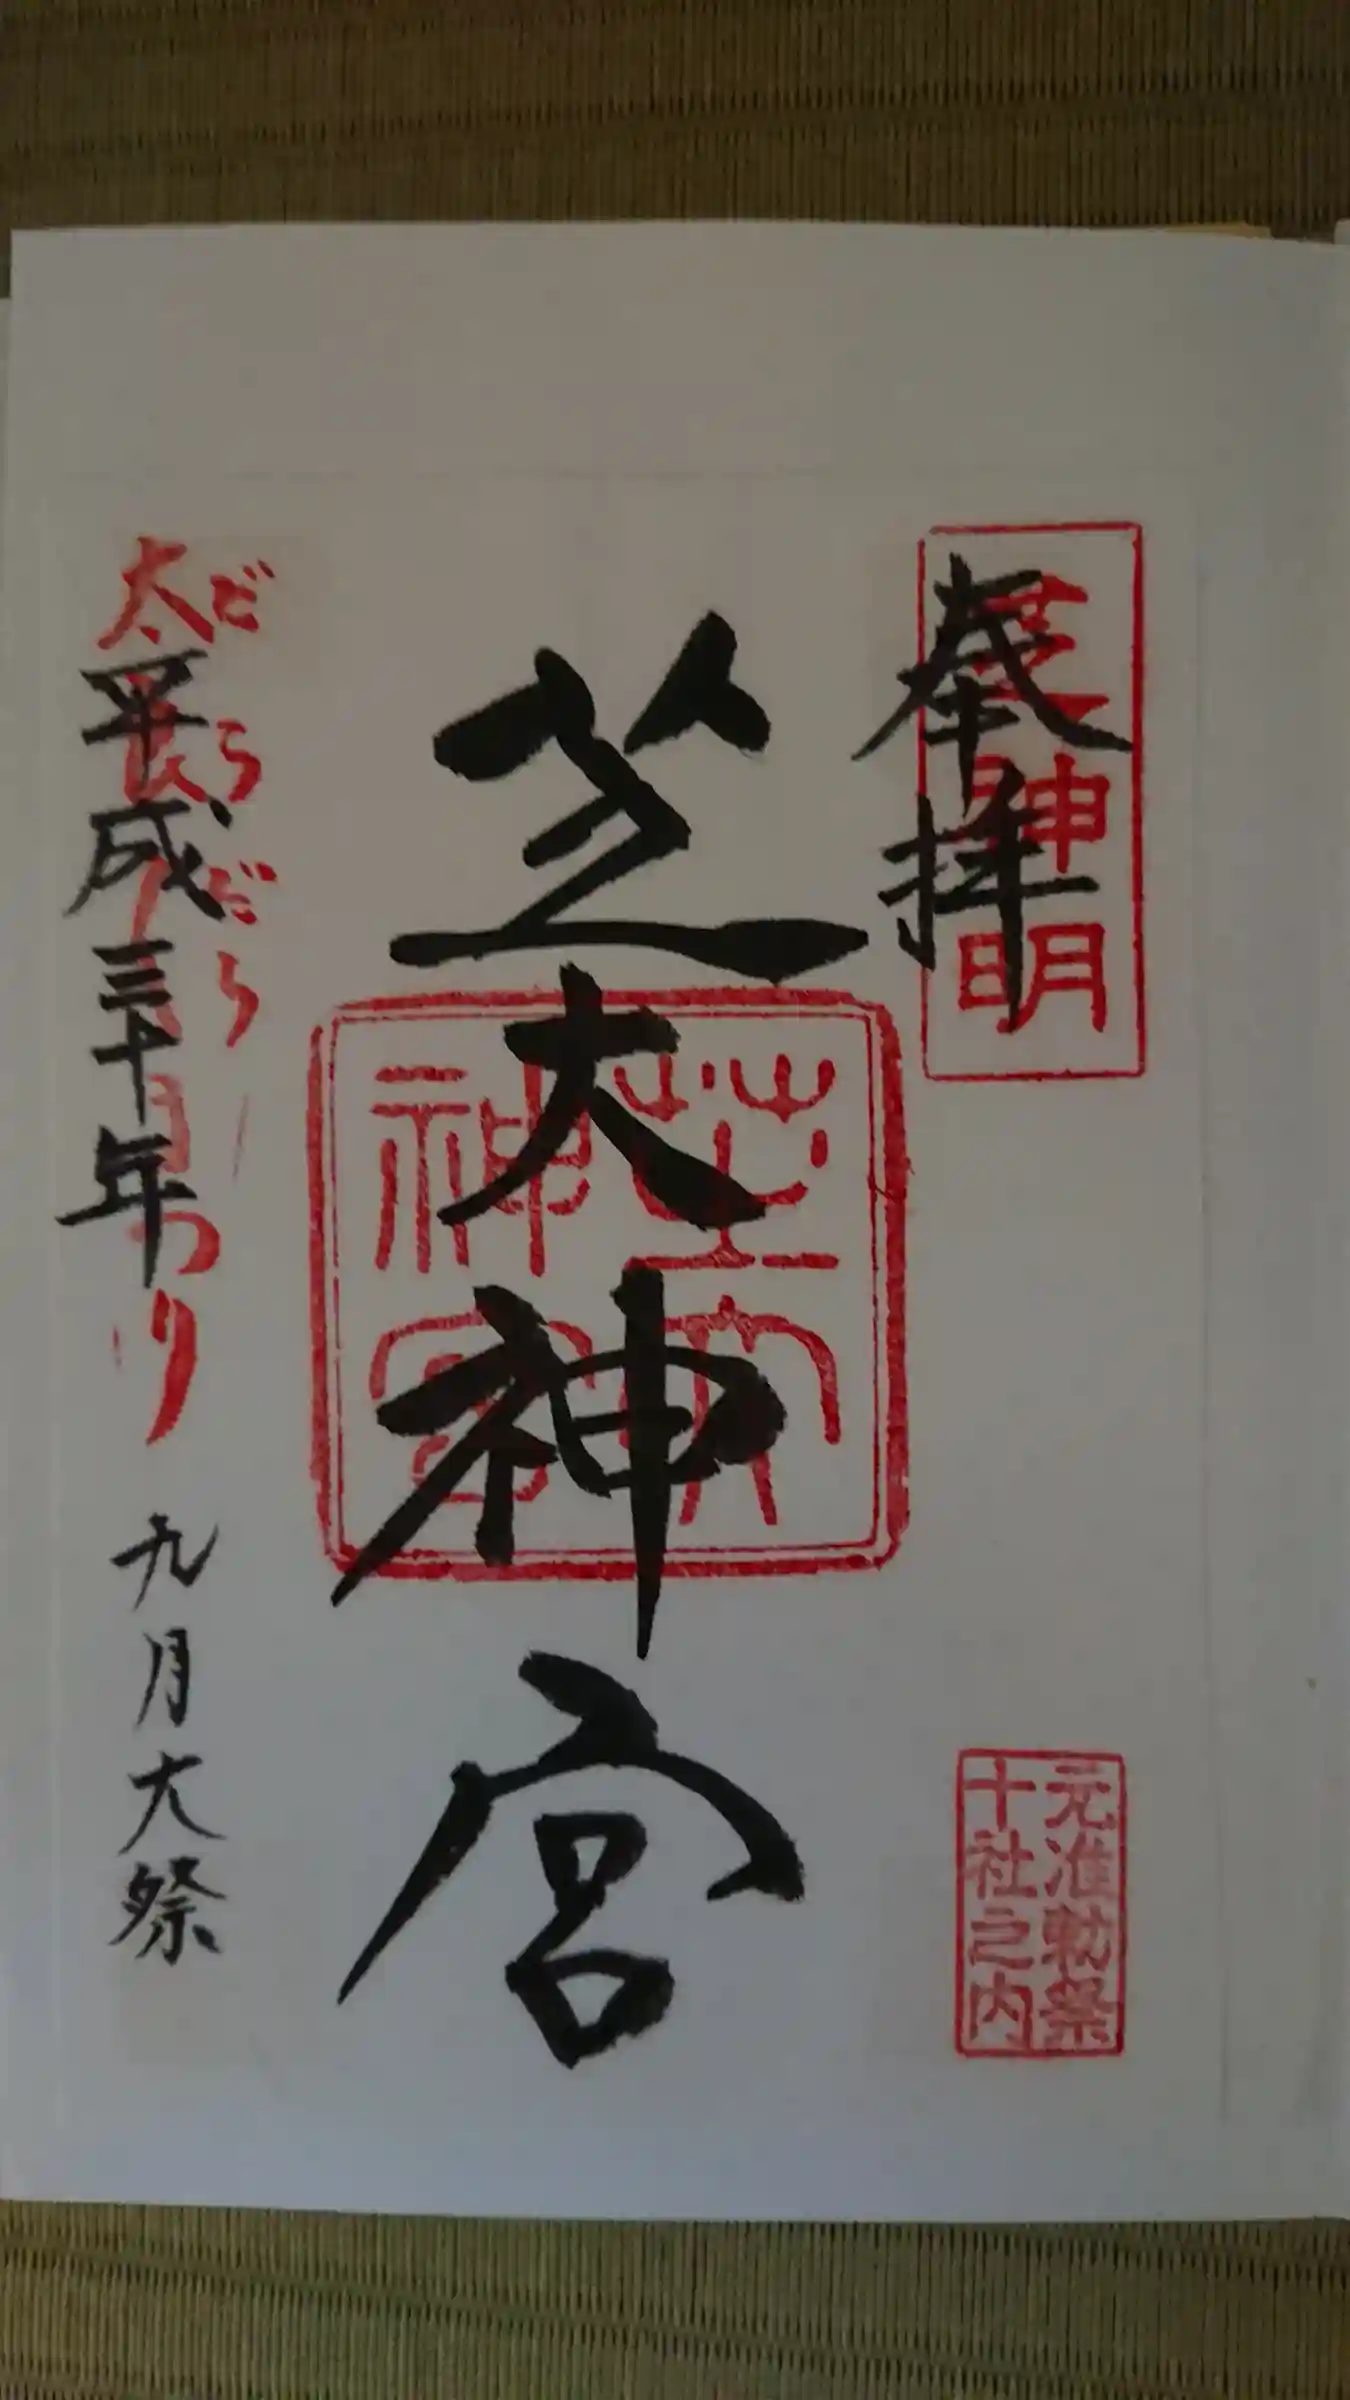 奉拝
芝神明
元准勅祭
十社之内
芝大神宮
芝大
神宮
だらだら
太良良まつり
平成三十年
九月大祭